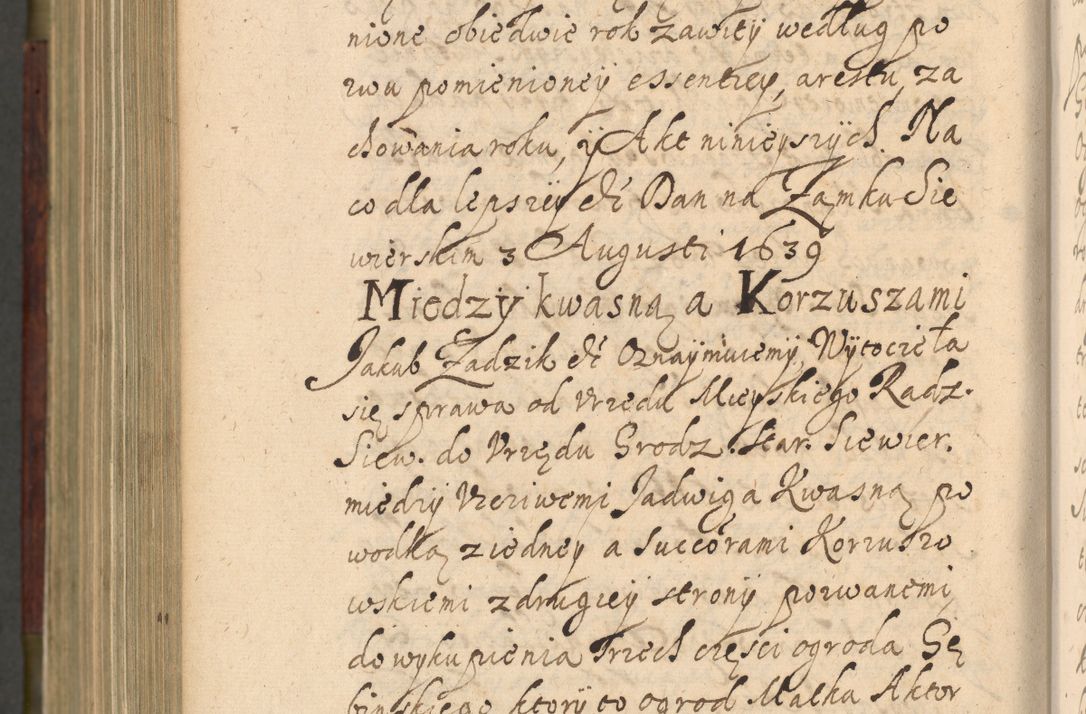 nione obiedwie rok zawity według po
zwu pomienioneÿ essentiey, arestu, za
chowania roku, ÿ Akt ninieyszÿch. Na
co dla lepszeÿ &c Dan na Zamku Sie
wierskim 3 Augusti 1639
Miedzy kwasną a Korzuszami
Jakub Zadzik &c Oznaÿmuiemÿ, Wÿtocżeła
się sprawa od Vrzedu Mieyskiego Radz.
Siew. do Vrzędu Grodz. Star. Siewier.
miedzÿ Vcziwemi Jadwigą Kwasną po
wodką z iedney a Succorami Korzuszo
wskiemi z drugieÿ stronÿ pozwanemi,
do wykupienia trzech części ogroda Gę
binskiego, ktorÿ to ogrod Matka Aktor